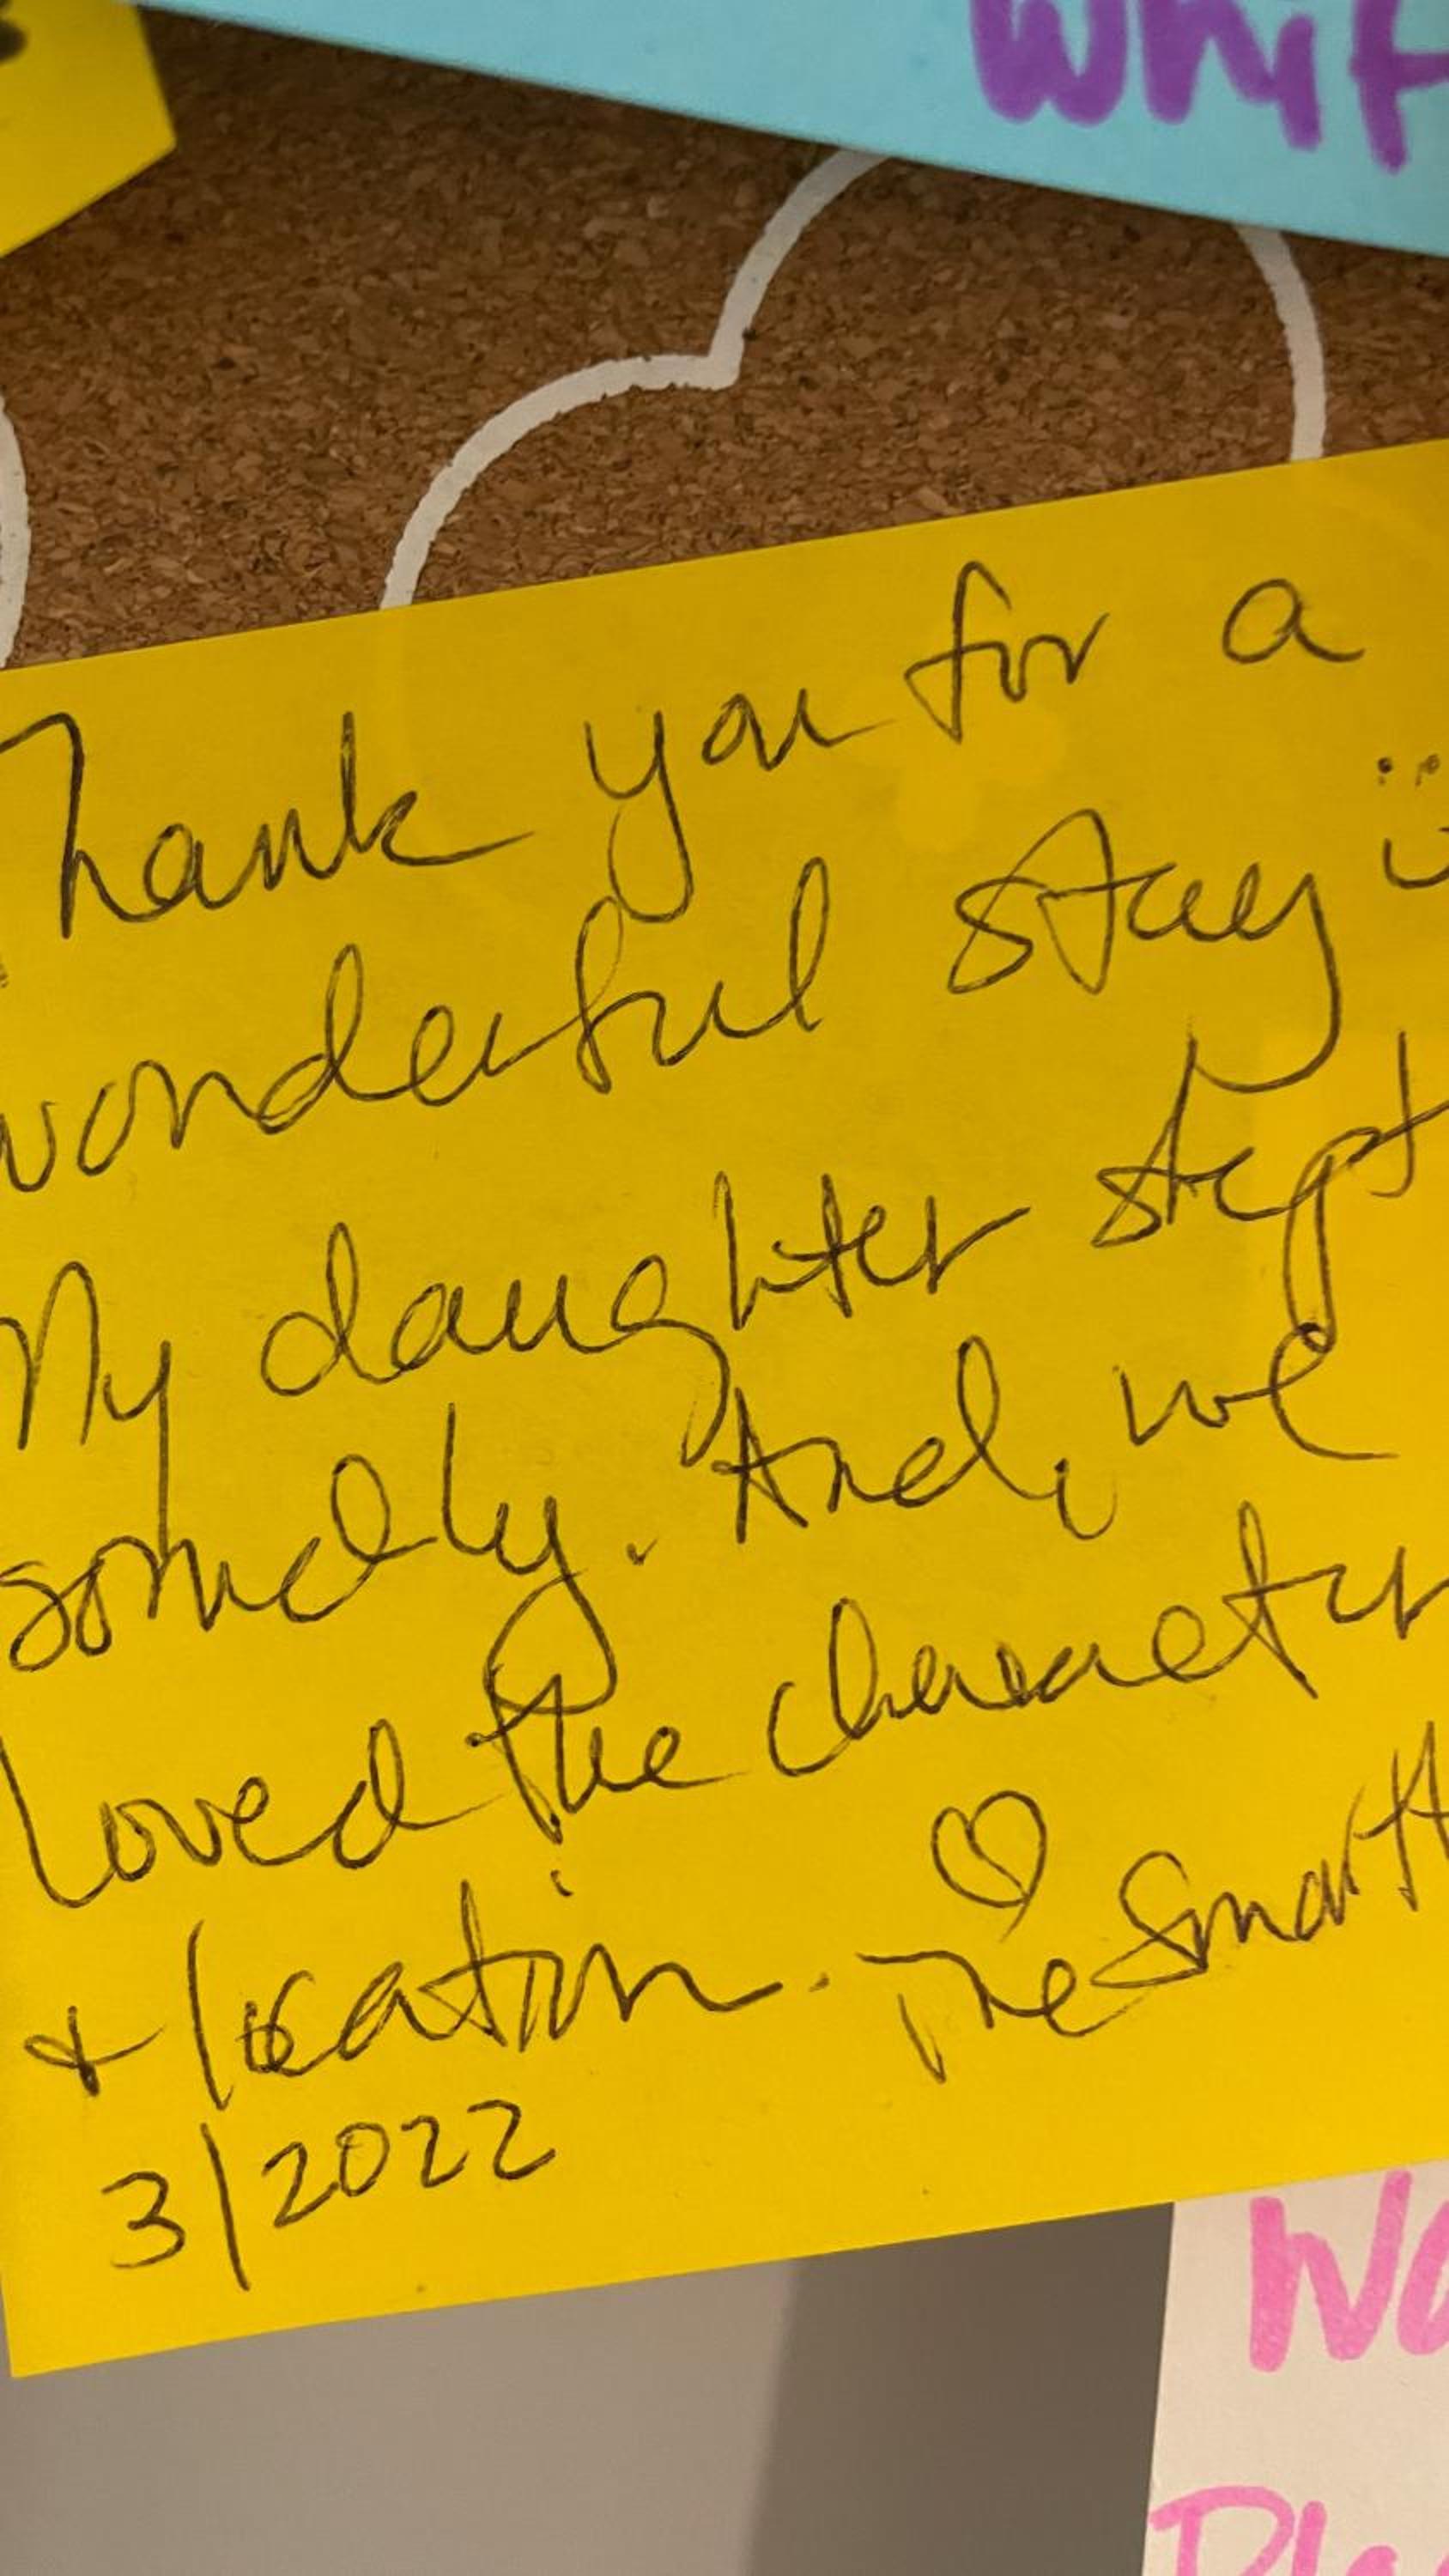 Whit
Thank you for a
wonderful stay :)
My daughter slept
soundly. And, we
loved the character
+ location. ♡ The Smart
3/2022